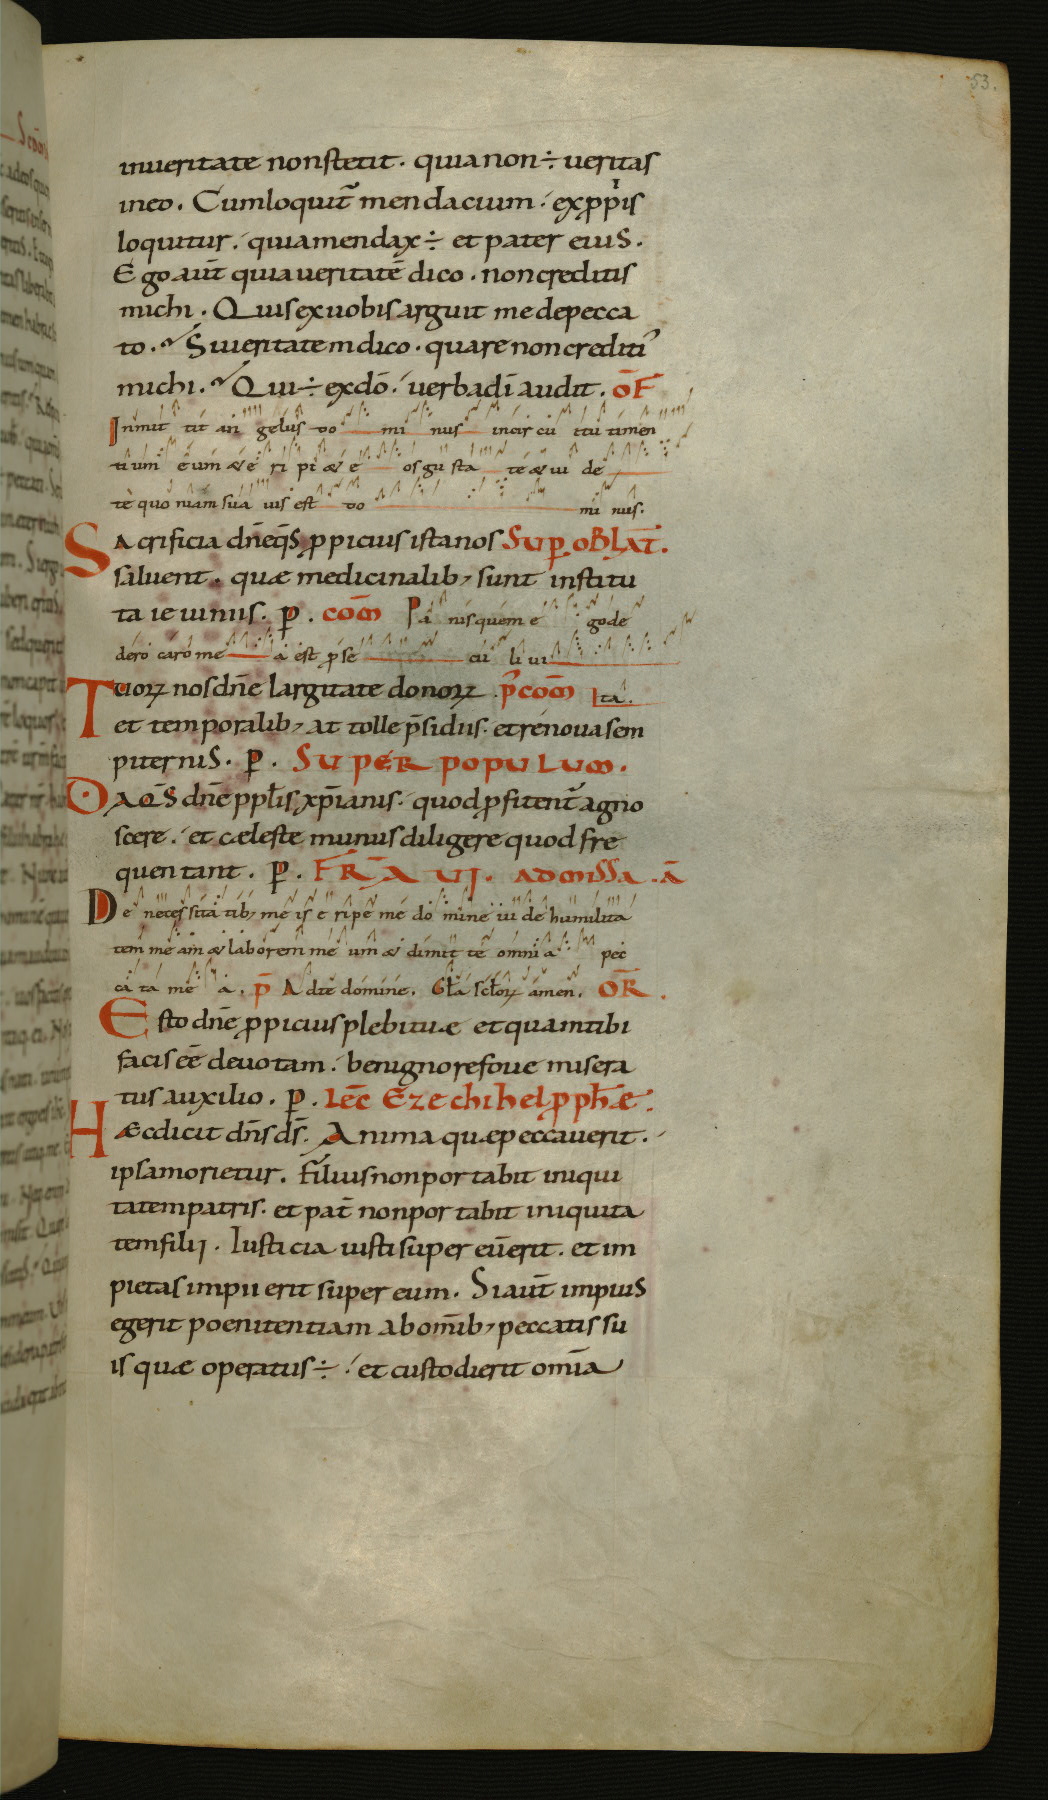 53.
inueritate nonstetit. quia non ÷ ueritas
ineo. Cumloquit̃ mendacium. exp̱p̱ris
loquitur. quiamendax ÷ et pater eius.
Ego aut̃ quia ueritatē dico. noncreditis
michi. Quisexuobis arguit me depecca
to. Siueritatem dico. quare noncrediti᾿
michi. Qui ÷ exdō. uerbadī audit. ōF
Inmit tit an gelus do mi nus incir cu itu timen
tium eum & e ri pi & e os gu sta te & ui de
te quo niam sua uis est do mi nus.
Sacrificia dn̄eqs̄ ꝓpicius istanos Suꝑ oblat̄.
saluent. quae medicinalib; sunt institu
ta ieiuniis. ꝑ. com̄ Pa nis quem e go de
dero caro me a est ꝓ se cu li ui
Tuorꝝ nos dn̄e largitate donorꝝ. p᾿com̄ ta.
et temporalib; at tolle p̄sidiis. et renoua sem
piternis. ꝑ. Super populum.
Da qs̄ dn̄e ppl̄is xp̄ianis. quod ꝓfitent̃ agno
scere. et caeleste munus diligere quod fre
quentant. ꝑ. FR̄A VI. ad missā. ā
De necessita tib; me is e ripe me do mine ui de humilita
tem me am & laborem me um & dimit te omni a pec
ca ta me a. p̄ Ad te domine. Gl̄a scl̄orꝝ amen. OR̄.
Esto dn̄e ꝓpicius plebi tuae et quam tibi
facis eē deuotam. benigno refoue misera
tus auxilio. ꝑ. Lec̄ Ezechihel ꝓph̄ae.
Haec dicit dn̄s ds̄. Anima quae peccauerit.
ipsa morietur. filius non portabit iniqui
tatem patris. et pat̃ non portabit iniquita
tem filii. Iusticia iusti super eūerit. et im
pietas impii erit super eum. Si aut̃ impius
egerit poenitentiam ab om̄ib; peccatis su
is quae operatus ÷. et custodierit om̄ia